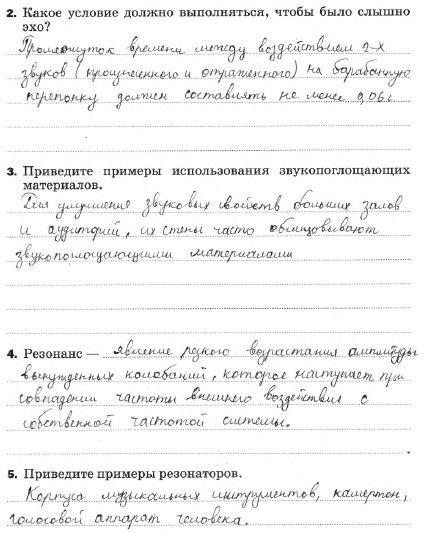 2. Какое условие должно выполняться, чтобы было слышно
эхо?
Промежуток времени между воздействием 2-х
звуков (произнесенного и отраженного) на барабанную
перепонку должен составлять не менее 0,06 с
3. Приведите примеры использования звукопоглощающих
материалов.
Для улучшения звуковых свойств больших залов
и аудиторий, их стены часто облицовывают
звукопоглощающими материалами
4. Резонанс — явление резкого возрастания амплитуды
вынужденных колебаний, которое наступает при
совпадении частоты внешнего воздействия с
собственной частотой системы.
5. Приведите примеры резонаторов.
Корпуса музыкальных инструментов, камертон,
голосовой аппарат человека.